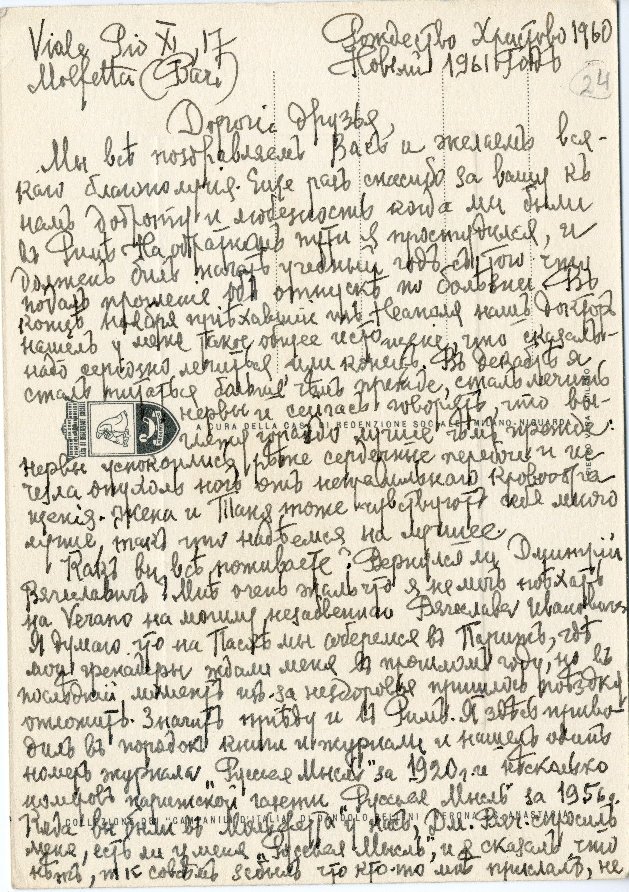 Viale Pio XI, 17
Molfetta (Bari)
Рождество Христово 1960
Новый 1961 годъ
24
Дорогіе друзья,
Мы всѣ поздравляемъ Васъ и желаемъ вся-
каго благополучия. Еще разъ спасибо за вашу къ
намъ доброту и любезность когда мы были
въ Римѣ. На обратномъ пути я простудился, и
долженъ былъ начать учебный годъ съ того что
подалъ прошеніе объ отпускѣ по болѣзни. Въ
концѣ ноября пріѣхавшій изъ Неаполя намъ докторъ
нашелъ у меня такое общее истощеніе, что сказалъ-
надо серіозно лечиться или конецъ. Въ декабрѣ я
сталъ питаться больше чѣмъ прежде, сталъ лечить
нервы и сейчасъ говорятъ, что вы-
A CURA DELLA CASA DI REDENZIONE SOCIALE - MILANO-NIGUARDA
гляжу гораздо лучше чѣмъ прежде:
нервы успокоились, рѣже сердечные перебои и ис-
чезла опухоль ногъ отъ неправильнаго кровообра-
щенія. Жена и Таня тоже чувствуютъ себя много
лучше, такъ что надѣемся на лучшее.
Какъ вы всѣ поживаете? Вернулся ли Дмитрій
Вячеславичъ? Мнѣ очень жаль что я не могъ поѣхать
на Verano на могилу незабвеннаго Вячеслава Ивановича
Я думаю что на Пасху мы соберемся въ Парижъ, гдѣ
мои гренадеры ждали меня въ прошломъ году, но въ
послѣдній моментъ изъ за нездоровья пришлось поѣздку
отложить. Значитъ пріѣду и въ Римъ. Я здѣсь приво-
дилъ въ порядокъ книги и журналы и нашелъ одинъ
номеръ журнала "Русская Мысль" за 1920 г. и нѣсколько
номеровъ парижской газеты "Русская Мысль" за 1956 г.
COLLEZIONE DEI "CAMPANILI D'ITALIA" DI DANDOLO BELLINI
VERONA
Когда вы были въ Молфеттѣ у насъ, Дм. Вяч. спросилъ
меня, есть ли у меня "Русская Мысль", и я сказалъ, что
нѣтъ, т.к. совсѣмъ забылъ что кто-то мнѣ прислалъ, не